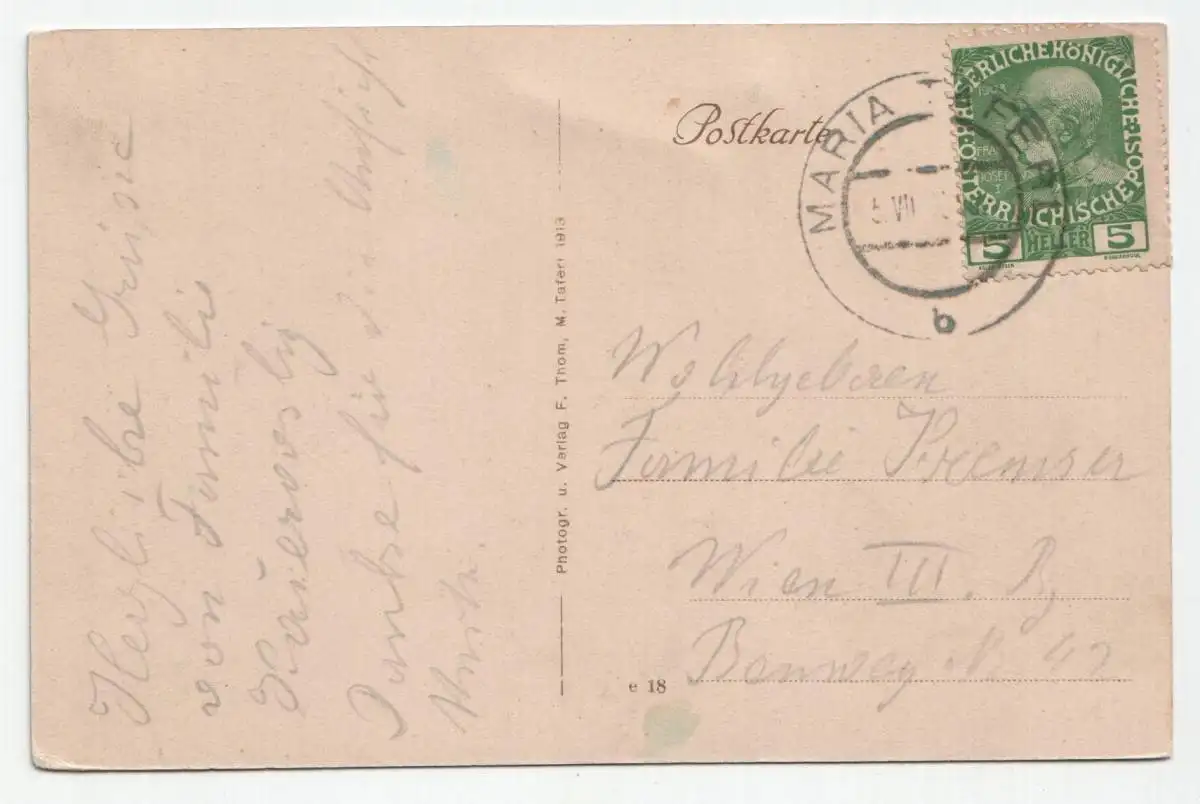 Postkarte
MARIA TAFERL
5. VII
b
KAISERLICHE KÖNIGLICHE ÖSTERREICHISCHE POST
1908
FRANZ
JOSEF
I
5 HELLER 5
Wohlgeboren
Familie Kremser
Wien III. B,
42
e 18
Photogr. u. Verlag F. Thom, M. Taferl 1913
Herzliche Grüsse
von Familie
Danke für die Ansichts
Karte.